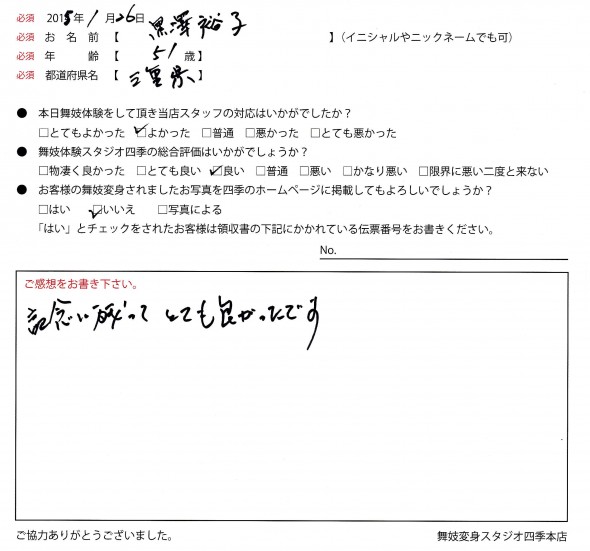 必須 2015年 1月 26日
必須 お 名 前 【 黒澤裕子 】（イニシャルやニックネームでも可）
必須 年　　齢 【 51 歳】
必須 都道府県名 【 三重県 】
● 本日舞妓体験をして頂き当店スタッフの対応はいかがでしたか？
□とてもよかった ☑よかった □普通 □悪かった □とても悪かった
● 舞妓体験スタジオ四季の総合評価はいかがでしょうか？
□物凄く良かった □とても良い ☑良い □普通 □悪い □かなり悪い □限界に悪い二度と来ない
● お客様の舞妓変身されましたお写真を四季のホームページに掲載してもよろしいでしょうか？
□はい ☑いいえ □写真による
「はい」とチェックをされたお客様は領収書の下記にかかれている伝票番号をお書きください。
No.
ご感想をお書き下さい。
記念に残って とても良かったです
ご協力ありがとうございました。
舞妓変身スタジオ四季本店